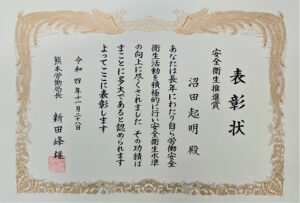 表彰状
安全衛生推進賞
沼田起明 殿
あなたは長年にわたり自ら労働安全
衛生活動を積極的に行い安全衛生水準
の向上に尽くされました その功績は
まことに多大であると認められます
よってここに表彰します
令和四年十一月二十八日
熊本労働局長
新田峰雄